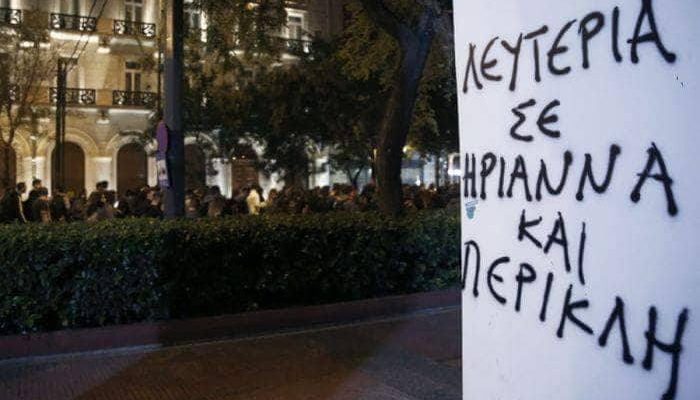 ΛΕΥΤΕΡΙΑ
ΣΕ
ΗΡΙΑΝΝΑ
ΚΑΙ
ΠΕΡΙΚΛΗ